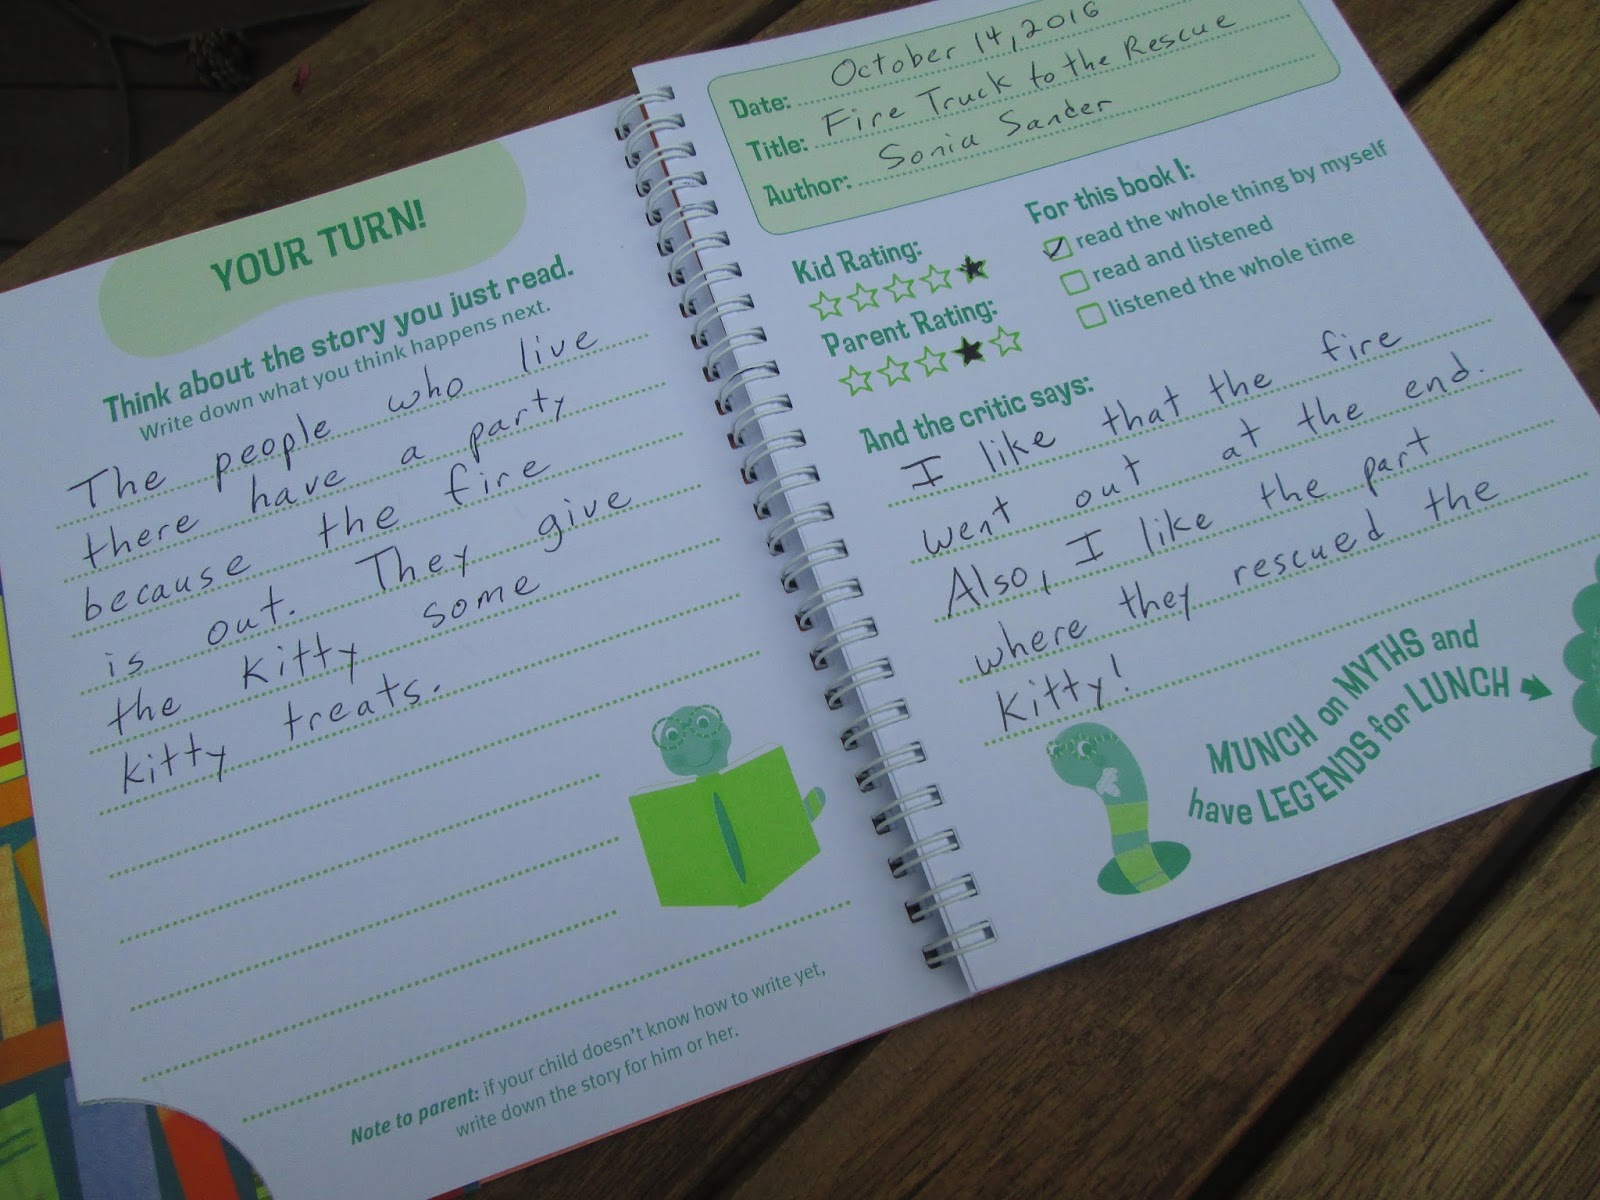 YOUR TURN!
Think about the story you just read.
Write down what you think happens next.
The people who live
there have a party
because the fire
is out. They give
the kitty some
kitty treats.
Note to parent: if your child doesn't know how to write yet,
write down the story for him or her.
Date: October 14, 2016
Title: Fire Truck to the Rescue
Author: Sonia Sander
Kid Rating:
Parent Rating:
For this book I:
read the whole thing by myself
read and listened
listened the whole time
And the critic says:
I like that the fire
went out at the end.
Also, I like the part
where they rescued the
kitty!
MUNCH on MYTHS and
have LEGENDS for LUNCH